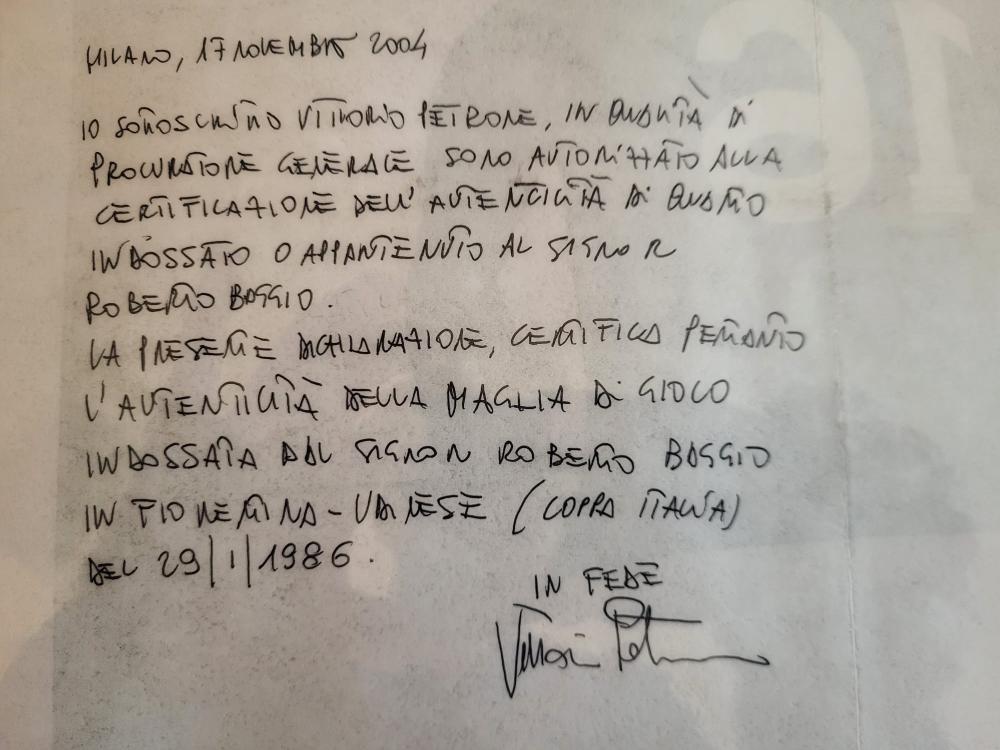 MILANO, 17 NOVEMBRE 2004
IO SOTTOSCRITTO VITTORIO PETRONE, IN QUALITÀ DI
PROCURATORE GENERALE SONO AUTORIZZATO ALLA
CERTIFICAZIONE DELL'AUTENCICITÀ DI QUANTO
INDOSSATO O APPARTENUTO AL SIGNOR
ROBERTO BAGGIO.
LA PRESENTE DICHIARAZIONE, CERTIFICA PERTANTO
L'AUTENTICITÀ DELLA MAGLIA DI GIOCO
INDOSSATA DAL SIGNOR ROBERTO BAGGIO
IN FIORENTINA-UDINESE (COPPA ITALIA)
DEL 29/1/1986.
IN FEDE
Vittorio Petrone